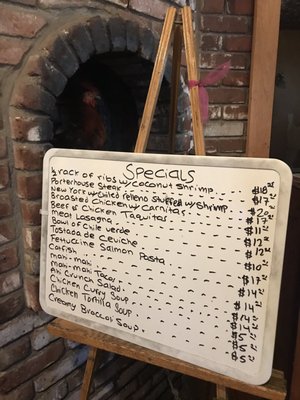 Specials
½ rack of ribs w/coconut shrimp $18
Porterhouse Steak $17
New York w/chile relleno stuffed w/shrimp $20
Roasted Chicken w/ carnitas $17
Beef or Chicken Taquitas $11
Meat Lasagna $12
Bowl of Chile verde $12
Tostada de Ceviche $10
Fettucine Salmon Pasta $17
Catfish $14
Mahi-mahi $14
Mahi-mahi Tacos $14
Ahi Crunch Salad $14
Chicken Curry Soup $5
Chicken Tortilla Soup $5
Creamy Broccoli Soup $5